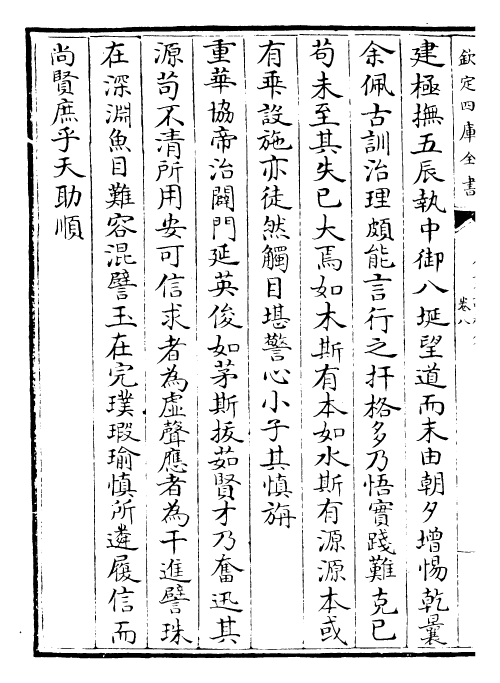 欽定四庫全書
卷八
建極撫五辰執中御八埏望道而未由朝夕增惕乾曩
余佩古訓治理頗能言行之扞格多乃悟實踐難克已
苟未至其失已大焉如木斯有本如水斯有源源本或
有乖設施亦徒然觸目堪警心小子其慎旃
重華協帝治闢門延英俊如茅斯拔茹賢才乃奮迅其
源苟不清所用安可信求者為虛聲應者為干進譬珠
在深淵魚目難容混譬玉在完璞瑕瑜慎所遴履信而
尚賢庶乎天助順